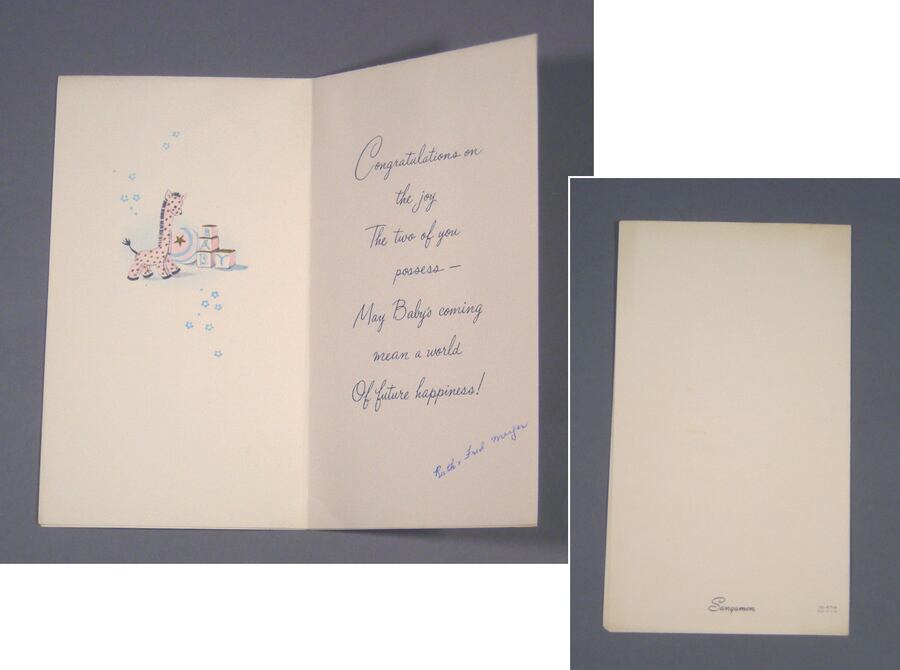 BABY
Congratulations on
the joy
The two of you
possess —
May Baby's coming
mean a world
Of future happiness!
Ruth & Fred Meyer
Sangamon